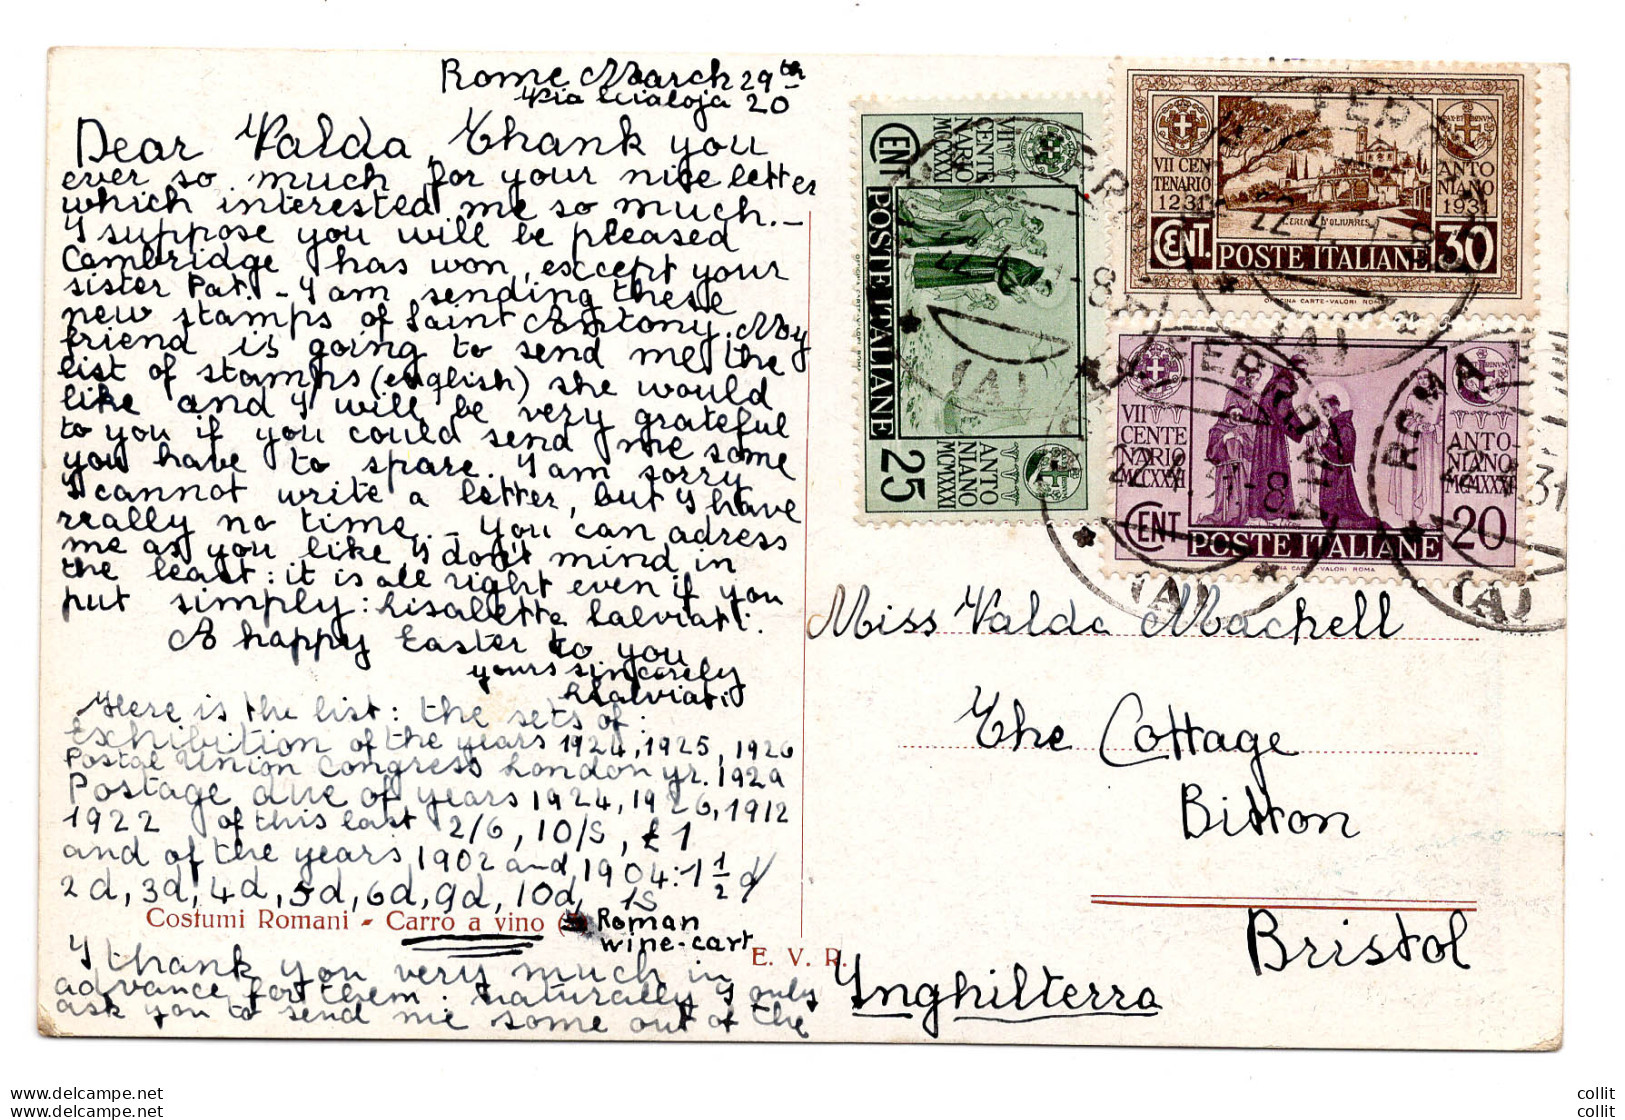 Rome March 29th
Via Scialoja 20
Dear Valda, Thank you
ever so much for your nice letter
which interested me so much. -
I suppose you will be pleased
Cambridge has won, except your
sister Pat. - I am sending these
new stamps of Saint Antony. My
friend is going to send me the
list of stamps (english) she would
like and I will be very grateful
to you if you could send me some
you have to spare. I am sorry
I cannot write a letter, but I have
really no time. - You can adress
me as you like, I don't mind in
the least: it is all right even if you
put simply: Lisabetta Salviati.
A happy Easter to you
yours sincerely
LSalviati
Here is the list: the sets of:
Exhibition of the years 1924, 1925, 1926
Postal Union Congress London yr. 1929
Postage due of years 1924, 1926, 1912
1922 of this last 2/6, 10/s, £1
and of the years 1902 and 1904: 1 1/2 d
2d, 3d, 4d, 5d, 6d, 9d, 10d, 1s
Costumi Romani - Carro a vino
Roman
wine-cart
E. V. R.
I thank you very much in
advance for them: naturally I only
ask you to send me some out of the
Miss Valda Machell
The Cottage
Bitton
Bristol
Inghilterra
VII CENTENARIO MCCXXXI
ANTONIANO MCMXXXI
CENT 25
POSTE ITALIANE
VII CENTENARIO 1231
ANTONIANO 1931
CEREMO D'OLIVARES
CENT. POSTE ITALIANE 30
OFFICINA CARTE-VALORI ROMA
VII CENTENARIO MCCXXXI
ANTONIANO MCMXXXI
CENT POSTE ITALIANE 20
OFFICINA CARTE-VALORI ROMA
ROMA
22.4.31-8
(A)
collit
collit